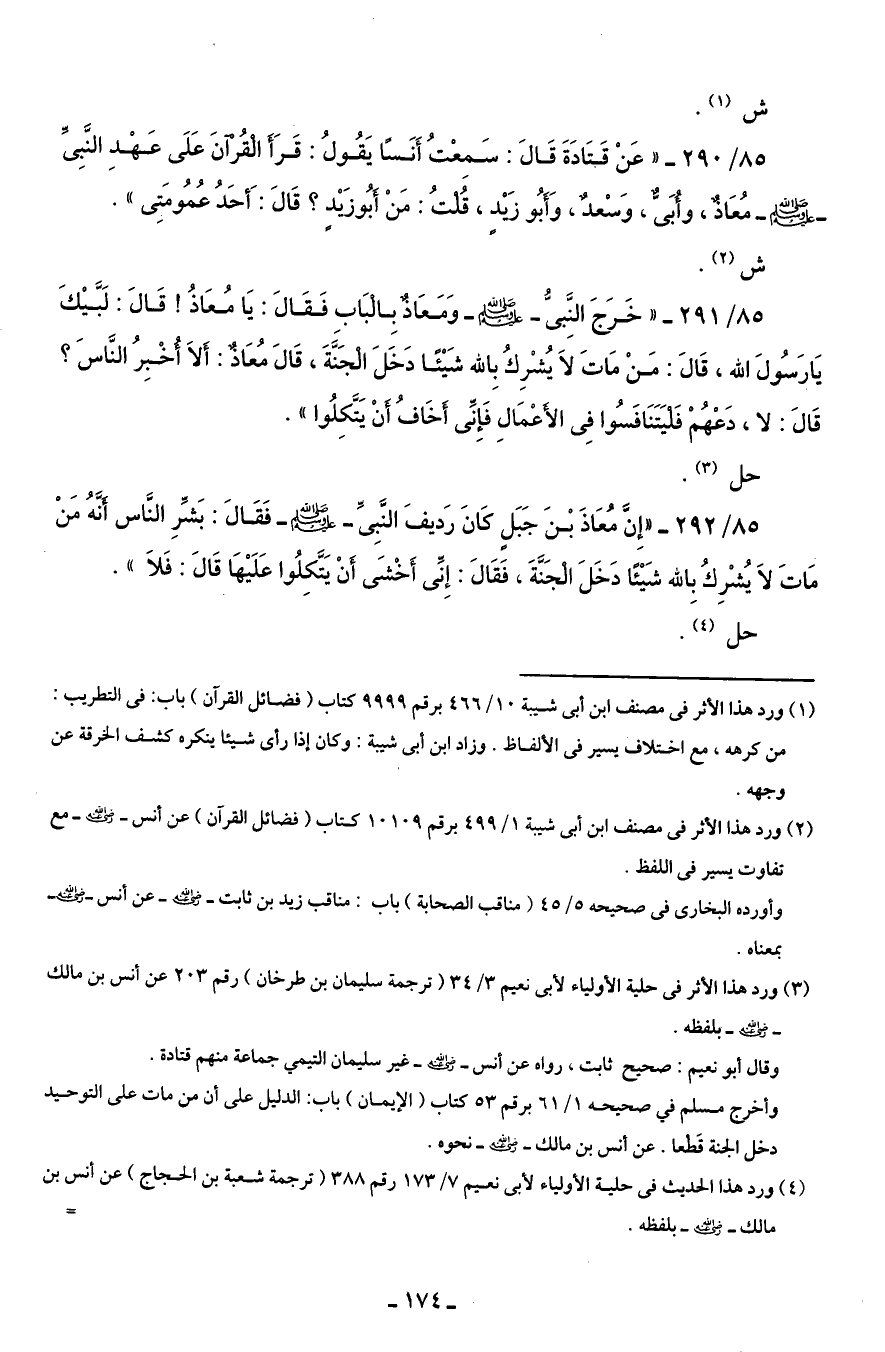 ش (١) .
٢٩٠/٨٥ ـ « عَنْ قَتَادَةَ قَالَ : سَمِعْتُ أَنَسًا يَقُولُ : قَرَأَ الْقُرْآنَ عَلَى عَهْدِ النَّبِىِّ
ـ ﷺ ـ مُعَاذٌ ، وأُبَىٌّ ، وَسَعْدٌ ، وَأَبُو زَيْدٍ ، قُلْتُ : مَنْ أَبُو زَيْدٍ ؟ قَالَ : أَحَدُ عُمُومَتِى » .
ش (٢) .
٢٩١/٨٥ ـ « خَرَجَ النَّبِىُّ ـ ﷺ ـ وَمَعَاذٌ بِالْبَابِ فَقَالَ : يَا مُعَاذُ ! قَالَ : لَبَّيْكَ
يَارَسُولَ الله ، قَالَ : مَنْ مَاتَ لاَ يُشْرِكُ بِالله شَيْئًا دَخَلَ الْجَنَّةَ ، قَالَ مُعَاذٌ : أَلاَ أُخْبِرُ النَّاسَ ؟
قَالَ : لا ، دَعْهُمْ فَلْيَتَنَافَسُوا فِى الأَعْمَالِ فَإِنِّى أَخَافُ أَنْ يَتَّكِلُوا » .
حل (٣) .
٢٩٢/٨٥ ـ «إِنَّ مُعَاذَ بْنَ جَبَلٍ كَانَ رَدِيفَ النَّبِىِّ ـ ﷺ ـ فَقَالَ : بَشِّرِ النَّاس أَنَّهُ مَنْ
مَاتَ لاَ يُشْرِكُ بِالله شَيْئًا دَخَلَ الْجَنَّةَ ، فَقَالَ : إِنِّى أَخْشَى أَنْ يَتَّكِلُوا عَلَيْهَا قَالَ : فَلاَ » .
حل (٤) .
(١) ورد هذا الأثر فى مصنف ابن أبى شيبة ١٠/ ٤٦٦ برقم ٩٩٩٩ كتاب ( فضائل القرآن ) باب: فى التطريب :
من كرهه ، مع اختلاف يسير فى الألفاظ . وزاد ابن أبى شيبة : وكان إذا رأى شيئا ينكره كشف الخرقة عن
وجهه .
(٢) ورد هذا الأثر فى مصنف ابن أبى شيبة ١/ ٤٩٩ برقم ١٠١٠٩ كتاب ( فضائل القرآن ) عن أنس ـ رضي الله عنه ـ مع
تفاوت يسير فى اللفظ .
وأورده البخارى فى صحيحه ٥/ ٤٥ ( مناقب الصحابة ) باب : مناقب زيد بن ثابت ـ رضي الله عنه ـ عن أنس ـ رضي الله عنه ـ
بمعناه .
(٣) ورد هذا الأثر فى حلية الأولياء لأبى نعيم ٣/ ٣٤ ( ترجمة سليمان بن طرخان ) رقم ٢٠٣ عن أنس بن مالك
ـ رضي الله عنه ـ بلفظه .
وقال أبو نعيم : صحيح ثابت ، رواه عن أنس ـ رضي الله عنه ـ غير سليمان التيمي جماعة منهم قتادة .
وأخرج مسلم في صحيحه ١/ ٦١ برقم ٥٣ كتاب ( الإيمان ) باب: الدليل على أن من مات على التوحيد
دخل الجنة قَطْعا . عن أنس بن مالك ـ رضي الله عنه ـ نحوه .
(٤) ورد هذا الحديث فى حلية الأولياء لأبى نعيم ٧/ ١٧٣ رقم ٣٨٨ ( ترجمة شعبة بن الحجاج ) عن أنس بن
مالك ـ رضي الله عنه ـ بلفظه .
=
ـ ١٧٤ ـ